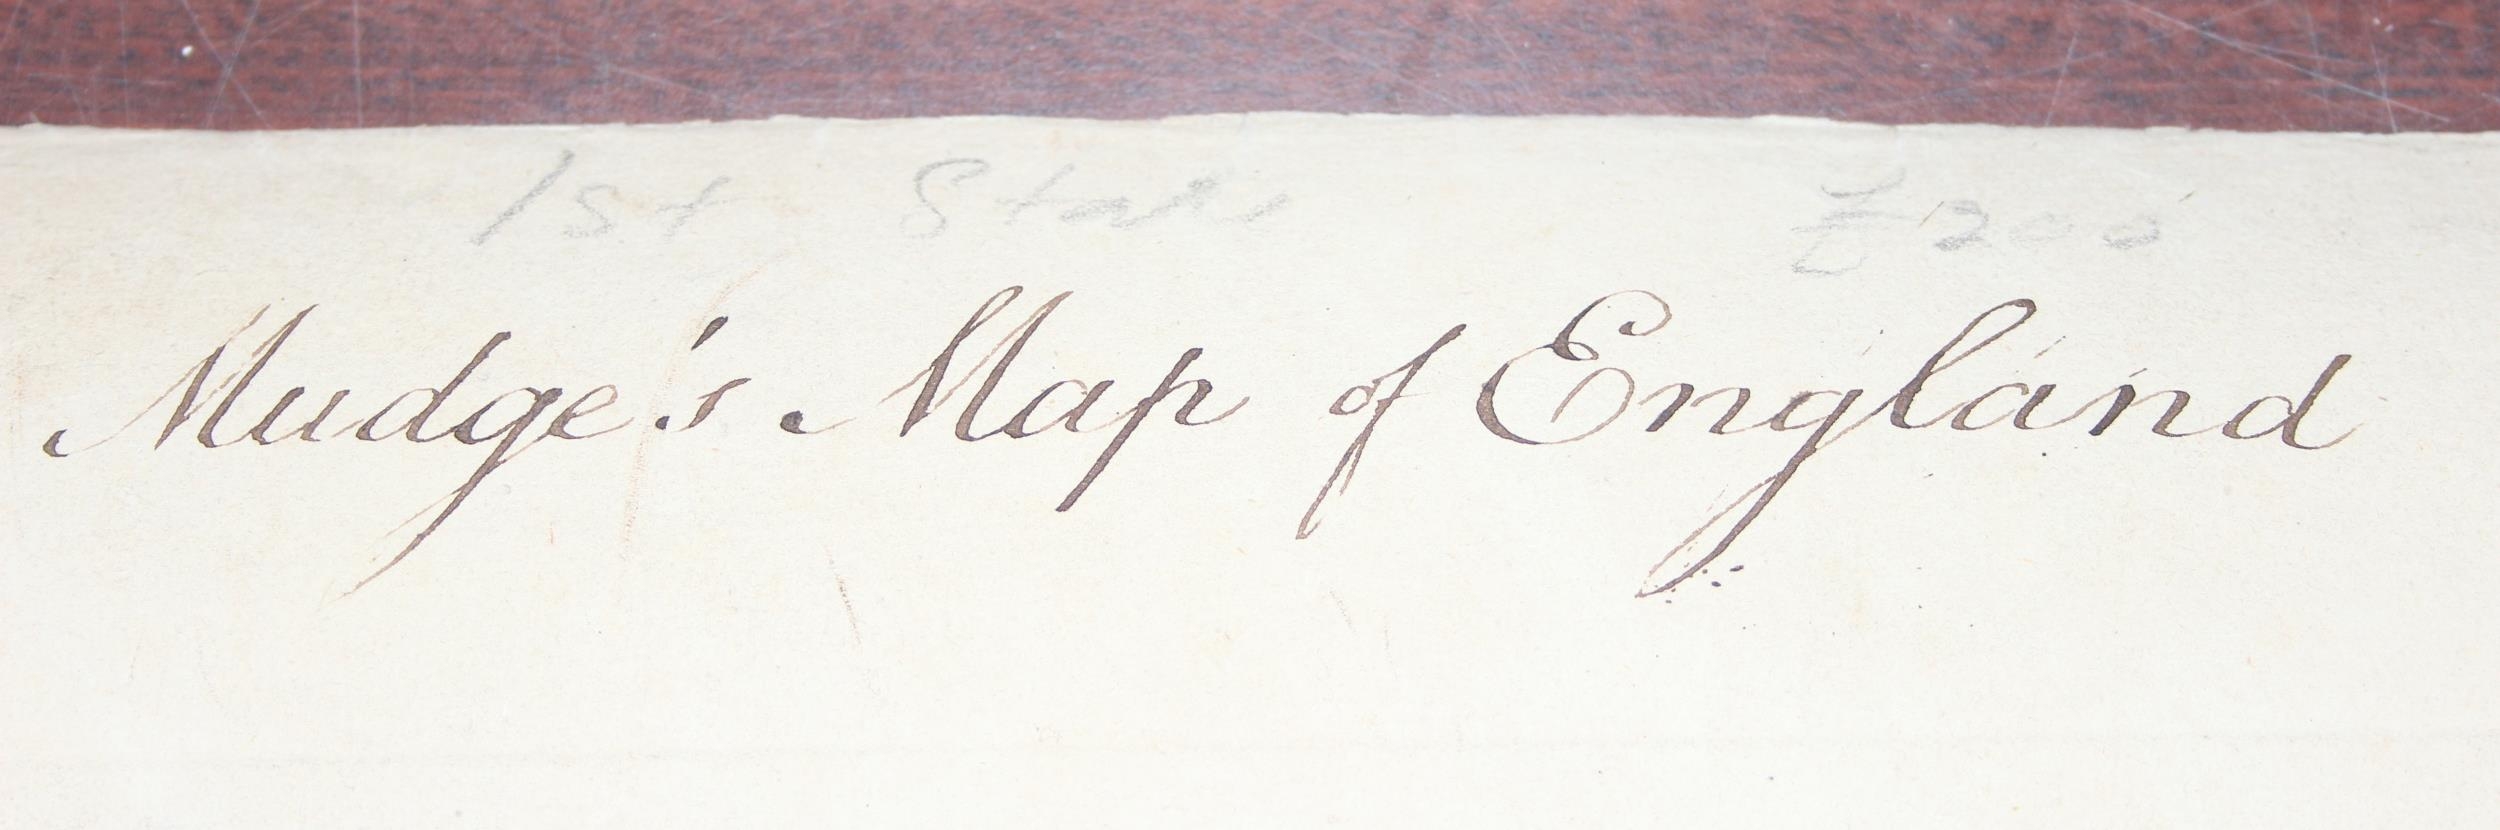 1st State £200
Mudge's Map of England